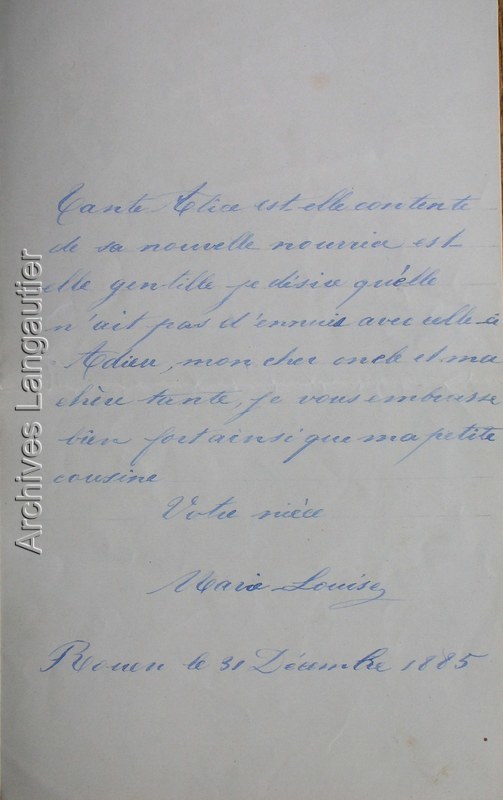 Tante Alice est-elle contente
de sa nouvelle nourrice est
elle gentille je désire qu'elle
n'ait pas d'ennuis avec celle-ci
Adieu, mon cher oncle et ma
chère tante, je vous embrasse
bien fort ainsi que ma petite
cousine
Votre nièce
Marie Louise
Rouen le 31 Décembre 1885
Archives Langautier